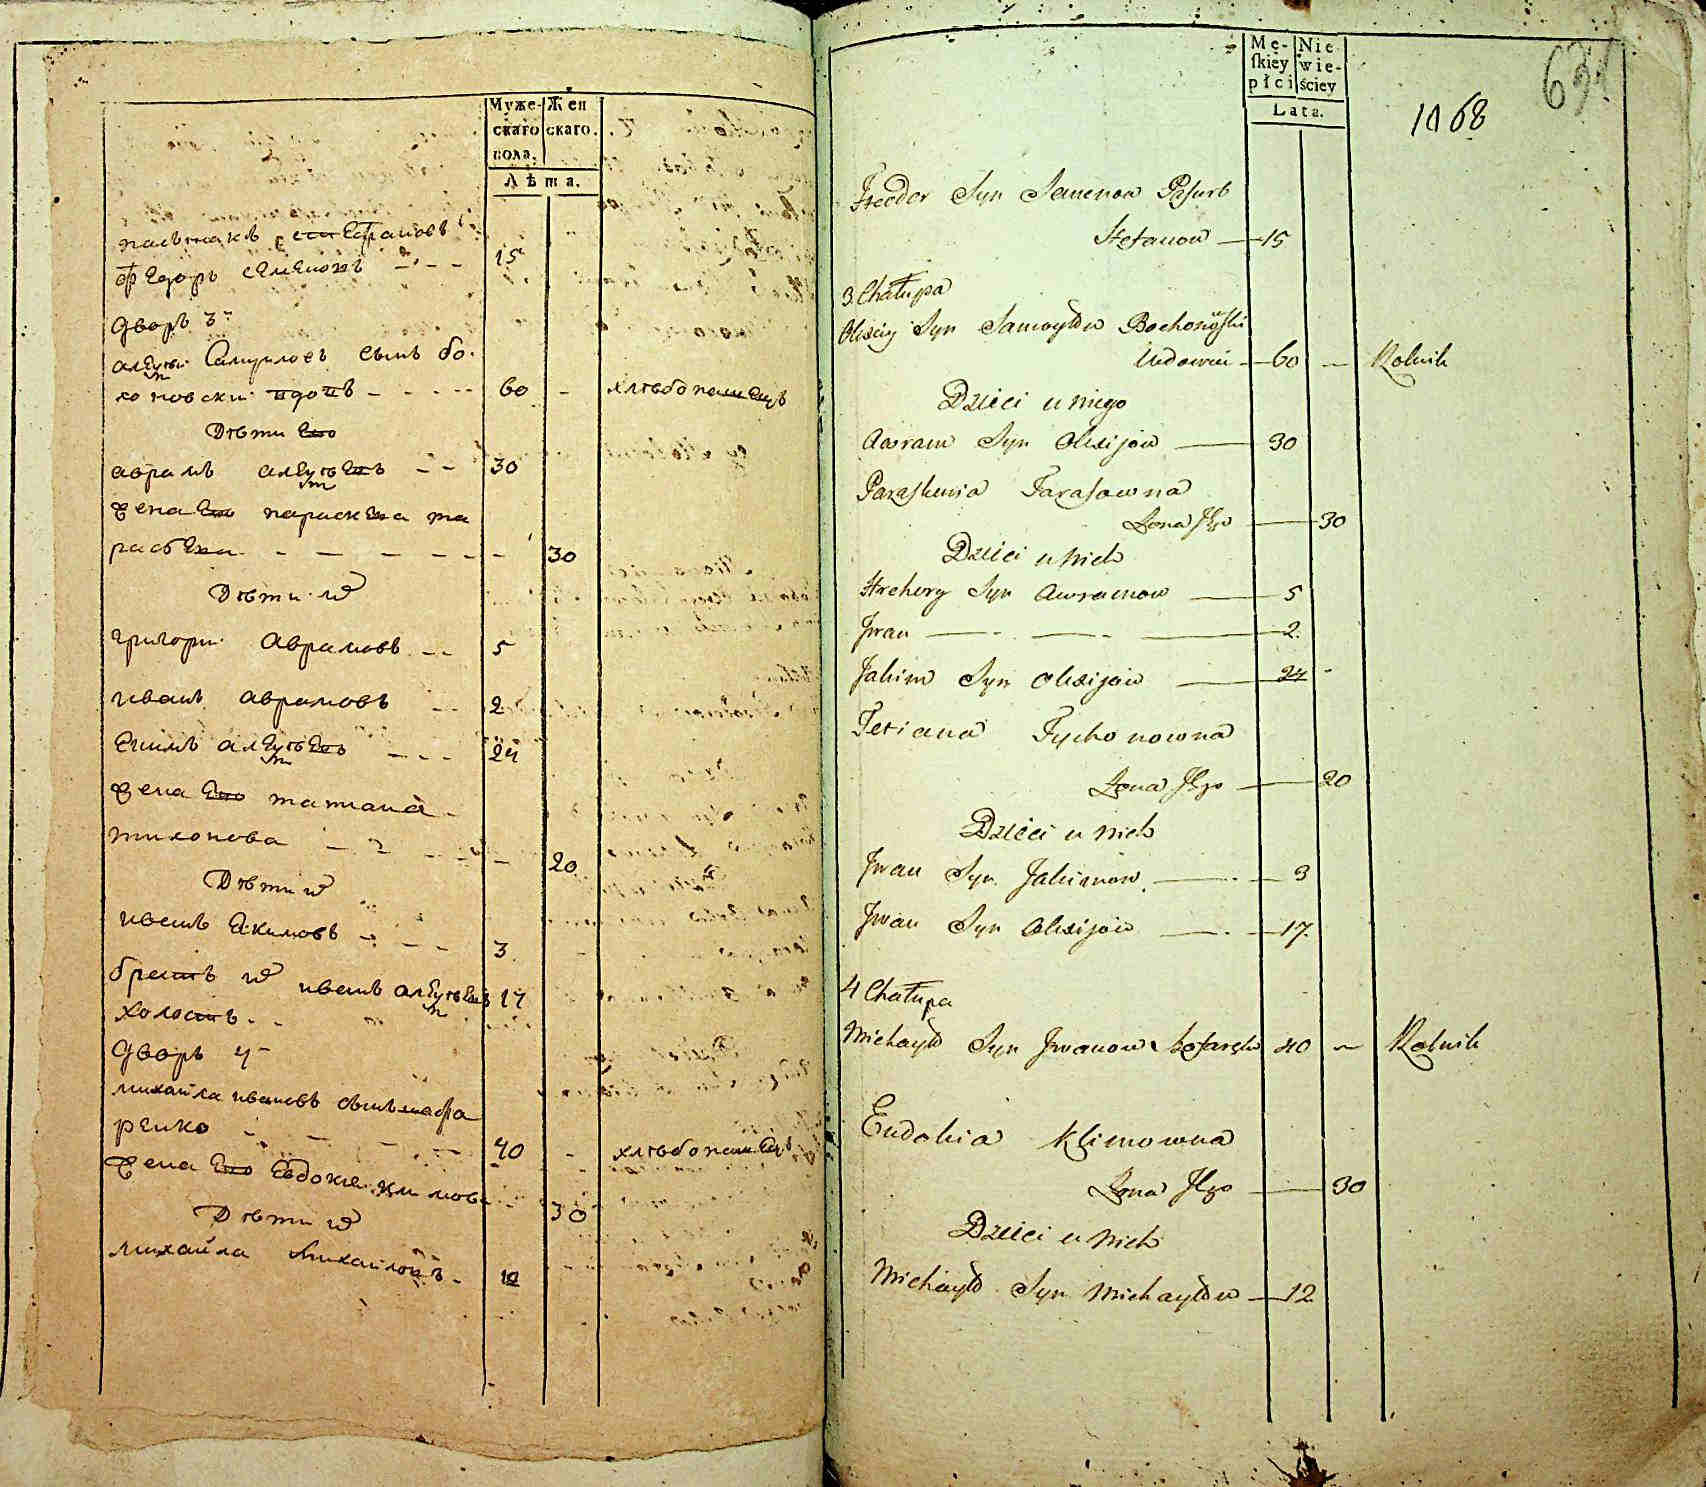 Муже-
скаго
пола.
Жен
скаго.
Лѣта.
пасынакъ Степановъ
Федоръ Семеновъ 15
дворъ 3
алеѯѣй Самуиловъ сынъ бо-
хоновски вдовъ 60 - хлѣбопашецъ
Дѣти Его
аврамъ алеѯѣевъ 30
жена Его параскева та
расова 30
Дѣти их
григори Аврамовъ 5
иванъ аврамовъ 2
Екимъ алеѯѣевъ 24
жена Его татиана
тихонова 20
Дѣти их
иванъ Екимовъ 3
братъ их иванъ алеѯѣевъ 17
холостъ
дворъ 4
михайла ивановъ сынъ
ренко 40 - хлѣбопашецъ
жена Его Евдокия климова 30
Дѣти их
михайла Михайловъ 12
Mę-
skiey
płci
Nie
wie-
ściey
Lata.
1068
Fteodor Syn Semenow Pasurb
Stefanow 15
3 Chałupa
Olexiy Syn Samoyłow Bochonowski
Wdowiec 60 Rolnik
Dzieci u niego
Awram Syn Olexijow 30
Paraskewia Tarasowna
Żona Jego 30
Dzieci u nich
Hrehory Syn Awramow 5
Jwan 2
Jakim Syn Olexijow 24
Tetiana Tychonowna
Żona Jego 20
Dzieci u nich
Jwan Syn Jakimow 3
Jwan Syn Olexijow 17
4 Chałupa
Michayło Syn Jwanow 40 Rolnik
Eudokia Klimowna
Żona Jego 30
Dzieci u nich
Michayło Syn Michayłow 12